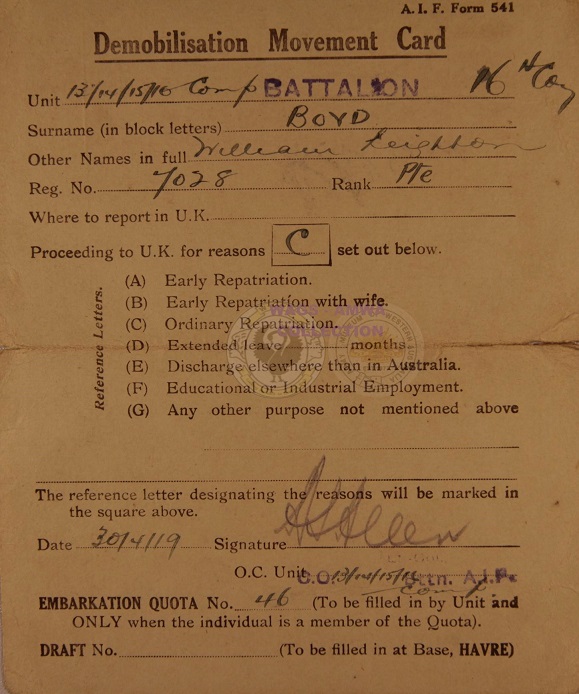 A. I. F. Form 541
Demobilisation Movement Card
Unit 13/14/15/16 Comp BATTALION 16th Coy
Surname (in block letters) BOYD
Other Names in full William Leighton
Reg. No. 7028 Rank Pte
Where to report in U.K.
Proceeding to U.K. for reasons C set out below.
Reference Letters.
(A) Early Repatriation.
(B) Early Repatriation with wife.
(C) Ordinary Repatriation.
(D) Extended leave months.
(E) Discharge elsewhere than in Australia.
(F) Educational or Industrial Employment.
(G) Any other purpose not mentioned above
WAGS ANWA
COLLECTION
The reference letter designating the reasons will be marked in
the square above.
Date 30/4/19 Signature
O.C. Unit C.O. 13/14/15/16 Battn. A.I.F.
Comp
EMBARKATION QUOTA No. 46 (To be filled in by Unit and
ONLY when the individual is a member of the Quota).
DRAFT No. (To be filled in at Base, HAVRE)